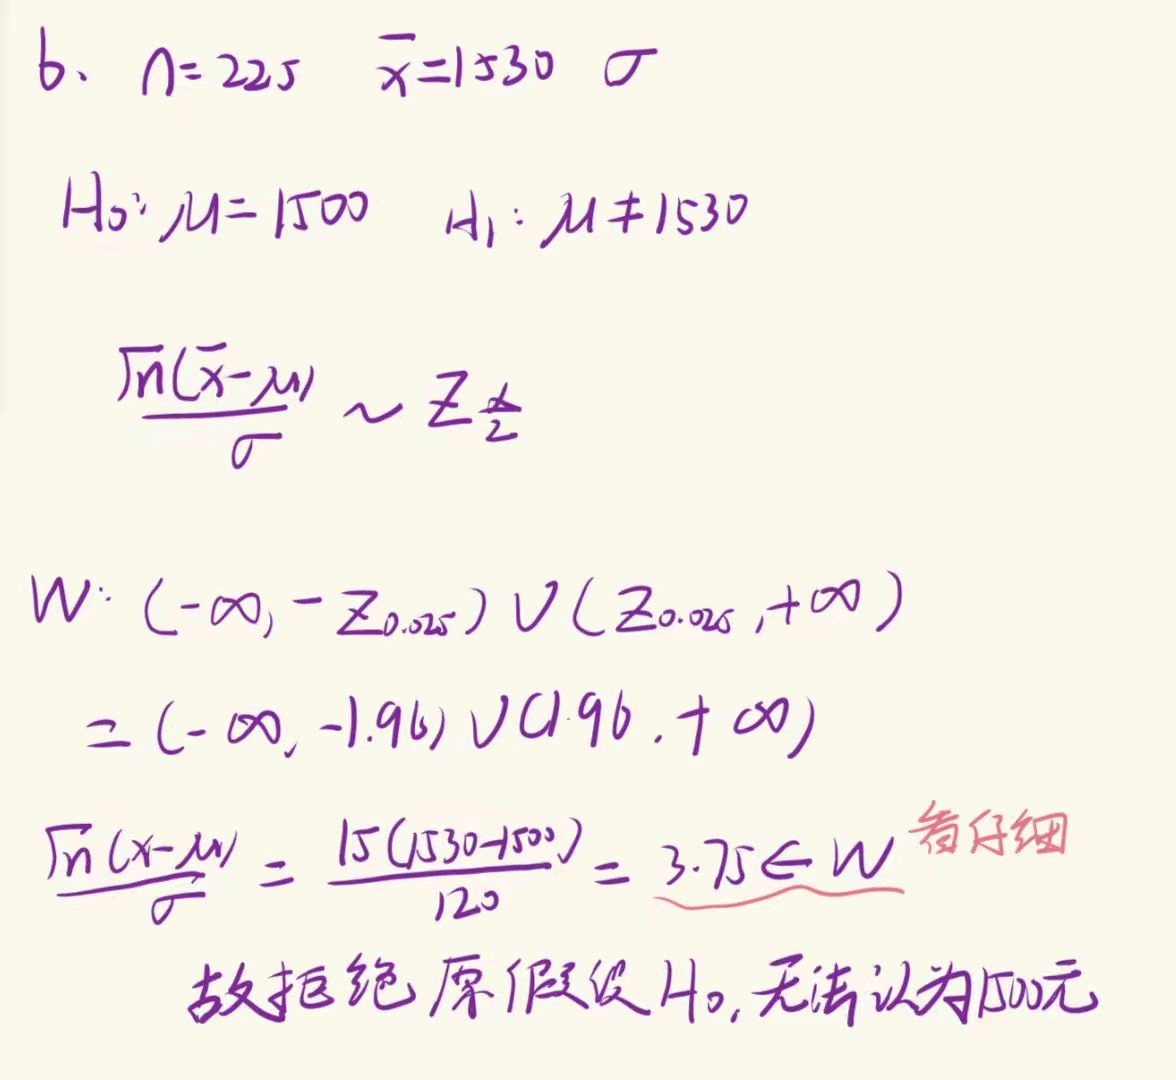 6、 n=225 x̄=1530 σ
H₀: μ=1500 H₁: μ≠1530
√n(x̄-μ)/σ ~ Z_{α/2}
W: (-∞, -Z₀.₀₂₅)∪(Z₀.₀₂₅,+∞)
=(-∞, -1.96)∪(1.96,+∞)
√n(x-μ)/σ = 15(1530-1500)/120 = 3.75∈W 看仔细
故拒绝原假设H₀,无法认为1500元